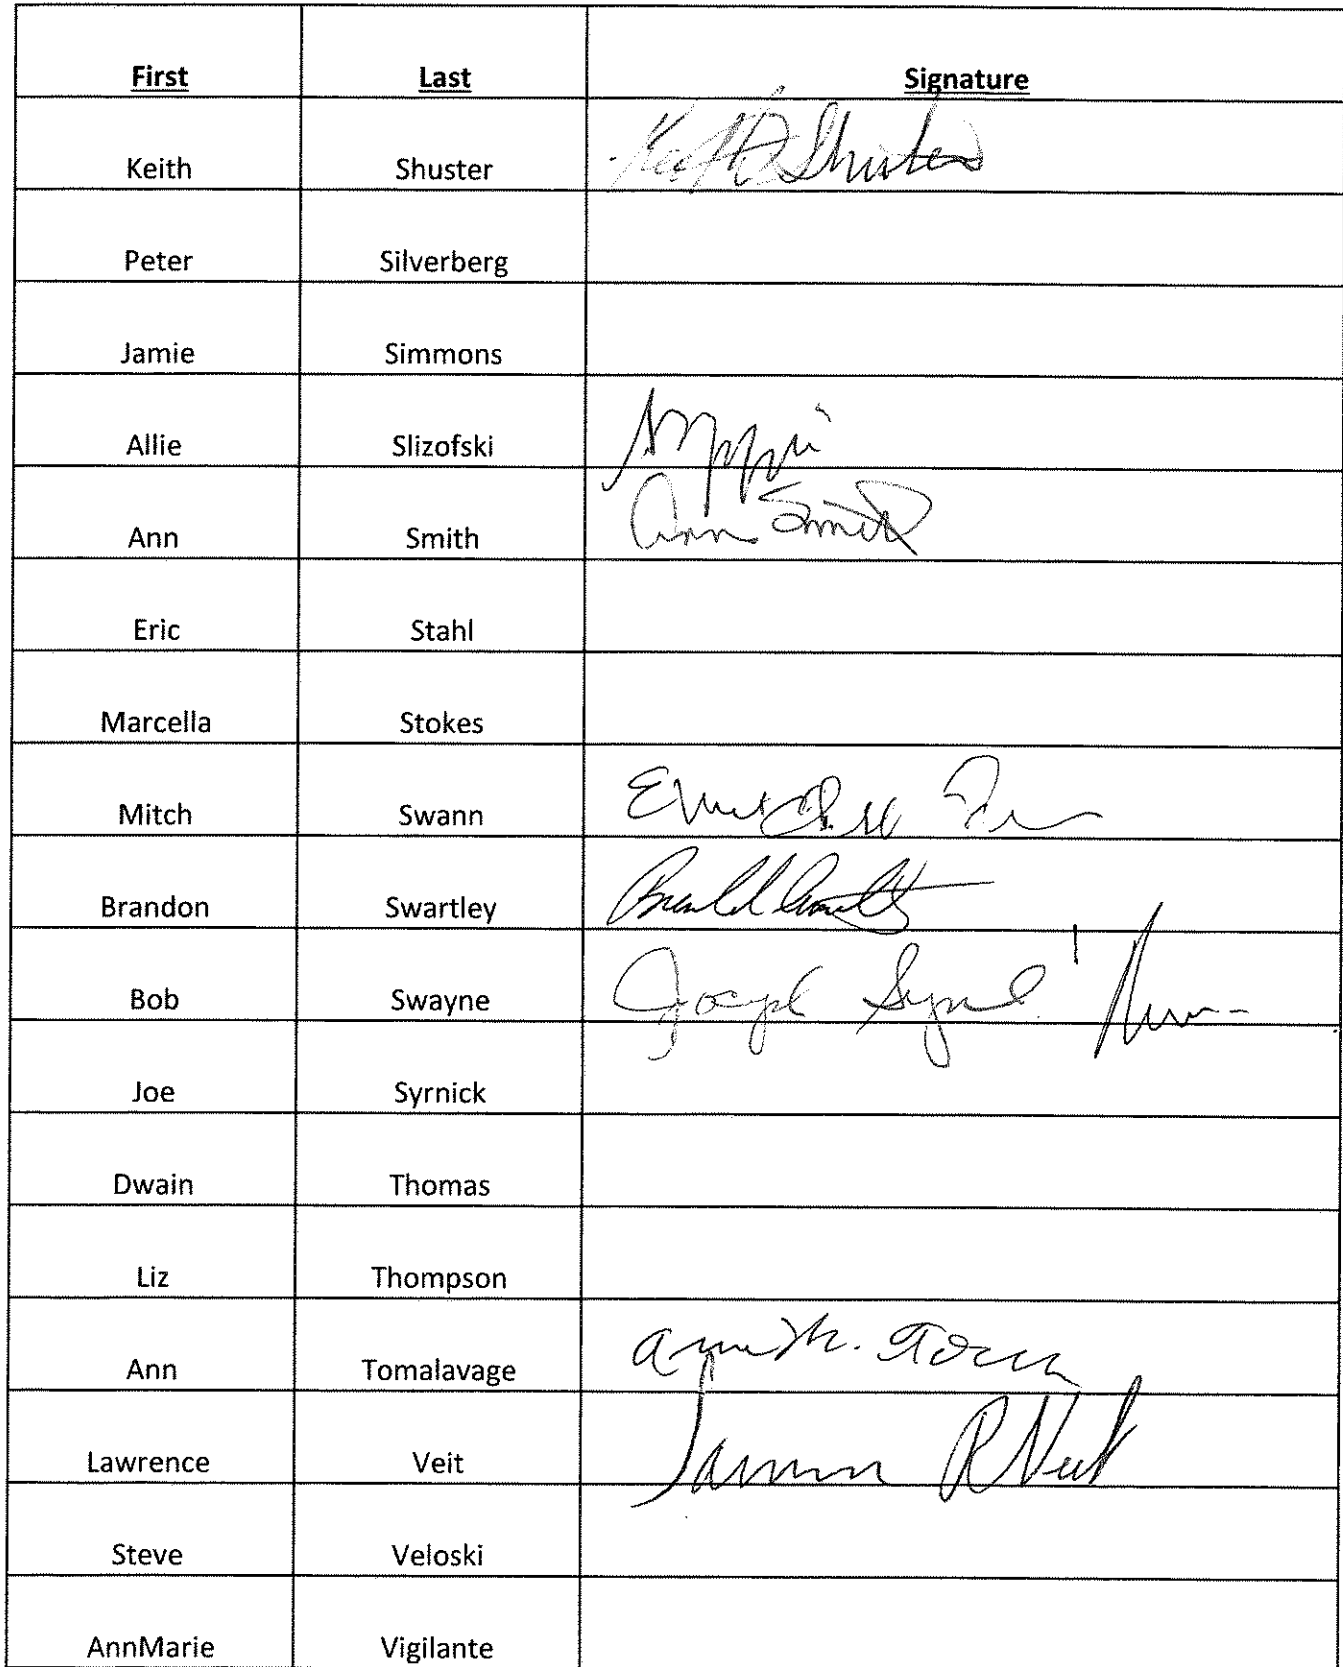 First Last Signature
Keith Shuster Keith Shuster
Peter Silverberg
Jamie Simmons
Allie Slizofski
Ann Smith Ann Smith
Eric Stahl
Marcella Stokes
Mitch Swann
Brandon Swartley
Bob Swayne Joseph
Joe Syrnick
Dwain Thomas
Liz Thompson
Ann Tomalavage Ann M.
Lawrence Veit R Veit
Steve Veloski
AnnMarie Vigilante